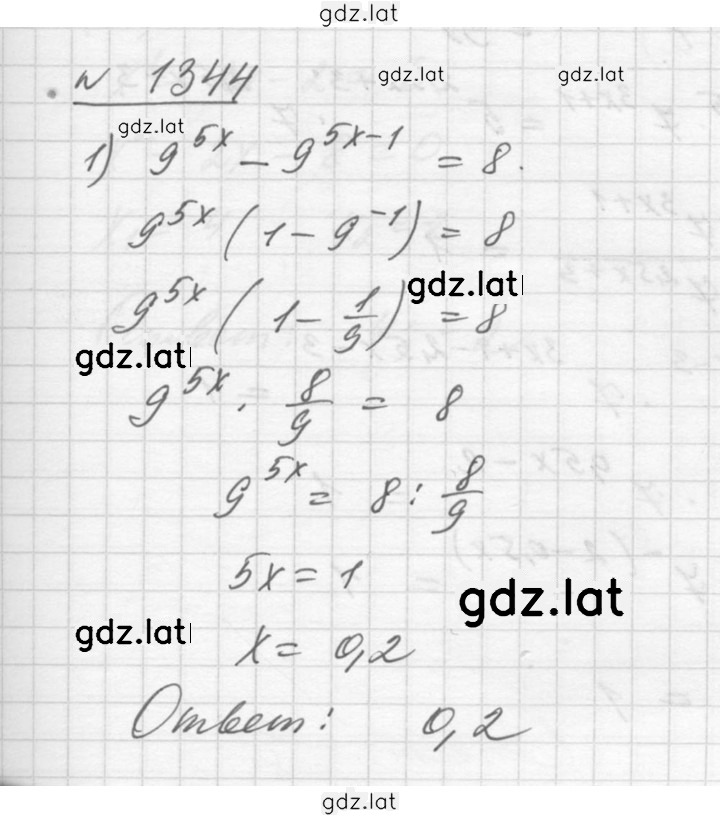 gdz.lat
№ 1344
gdz.lat gdz.lat
gdz.lat
1) 9^{5x} - 9^{5x-1} = 8.
9^{5x} (1 - 9^{-1}) = 8
gdz.lat
9^{5x} (1 - \frac{1}{9}) = 8
gdz.lat
9^{5x} \cdot \frac{8}{9} = 8
9^{5x} = 8 : \frac{8}{9}
5x = 1
gdz.lat
gdz.lat
x = 0,2
Ответ: 0,2
gdz.lat